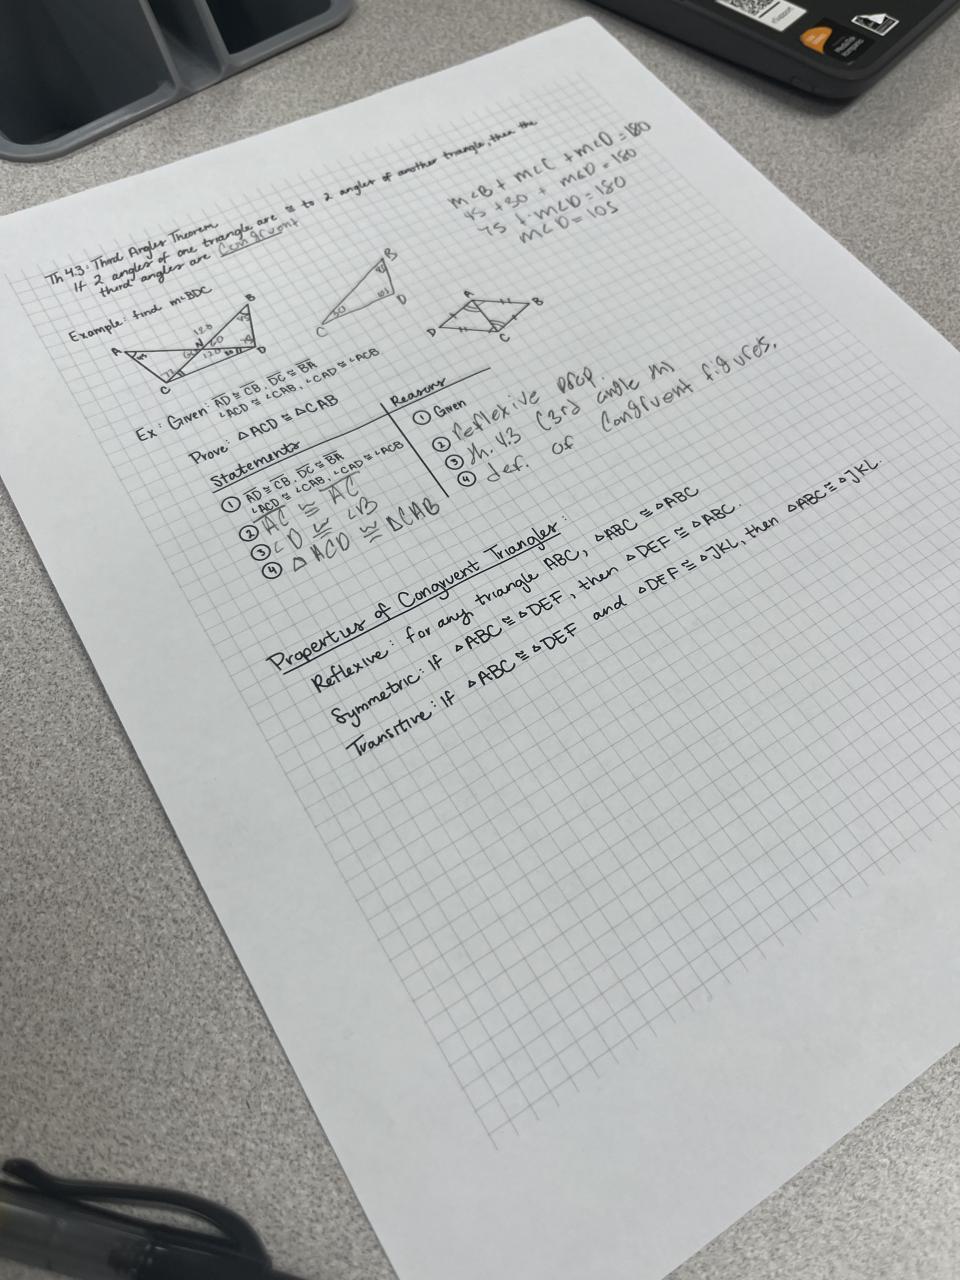 Th 4.3: Third Angles Theorem
If 2 angles of one triangle are ≅ to 2 angles of another triangle, then the
third angles are Congruent
m∠B + m∠C + m∠D = 180
45 + 30 + m∠D = 180
75 + m∠D = 180
m∠D = 105
Example: find m∠BDC
A
B
C
D
N
120
60
120
45
B
C
D
30
105
A
B
C
D
Ex: Given: AD ≅ CB, DC ≅ BA
∠ACD ≅ ∠CAB, ∠CAD ≅ ∠ACB
Prove: △ACD ≅ △CAB
Statements
Reasons
① AD ≅ CB, DC ≅ BA
∠ACD ≅ ∠CAB, ∠CAD ≅ ∠ACB
① Given
② AC ≅ AC
② reflexive prop.
③ ∠D ≅ ∠B
③ th. 4.3 (3rd angle th)
④ △ACD ≅ △CAB
④ def. of congruent figures.
Properties of Congruent Triangles:
Reflexive: for any triangle ABC, △ABC ≅ △ABC
Symmetric: If △ABC ≅ △DEF, then △DEF ≅ △ABC.
Transitive: If △ABC ≅ △DEF and △DEF ≅ △JKL, then △ABC ≅ △JKL.